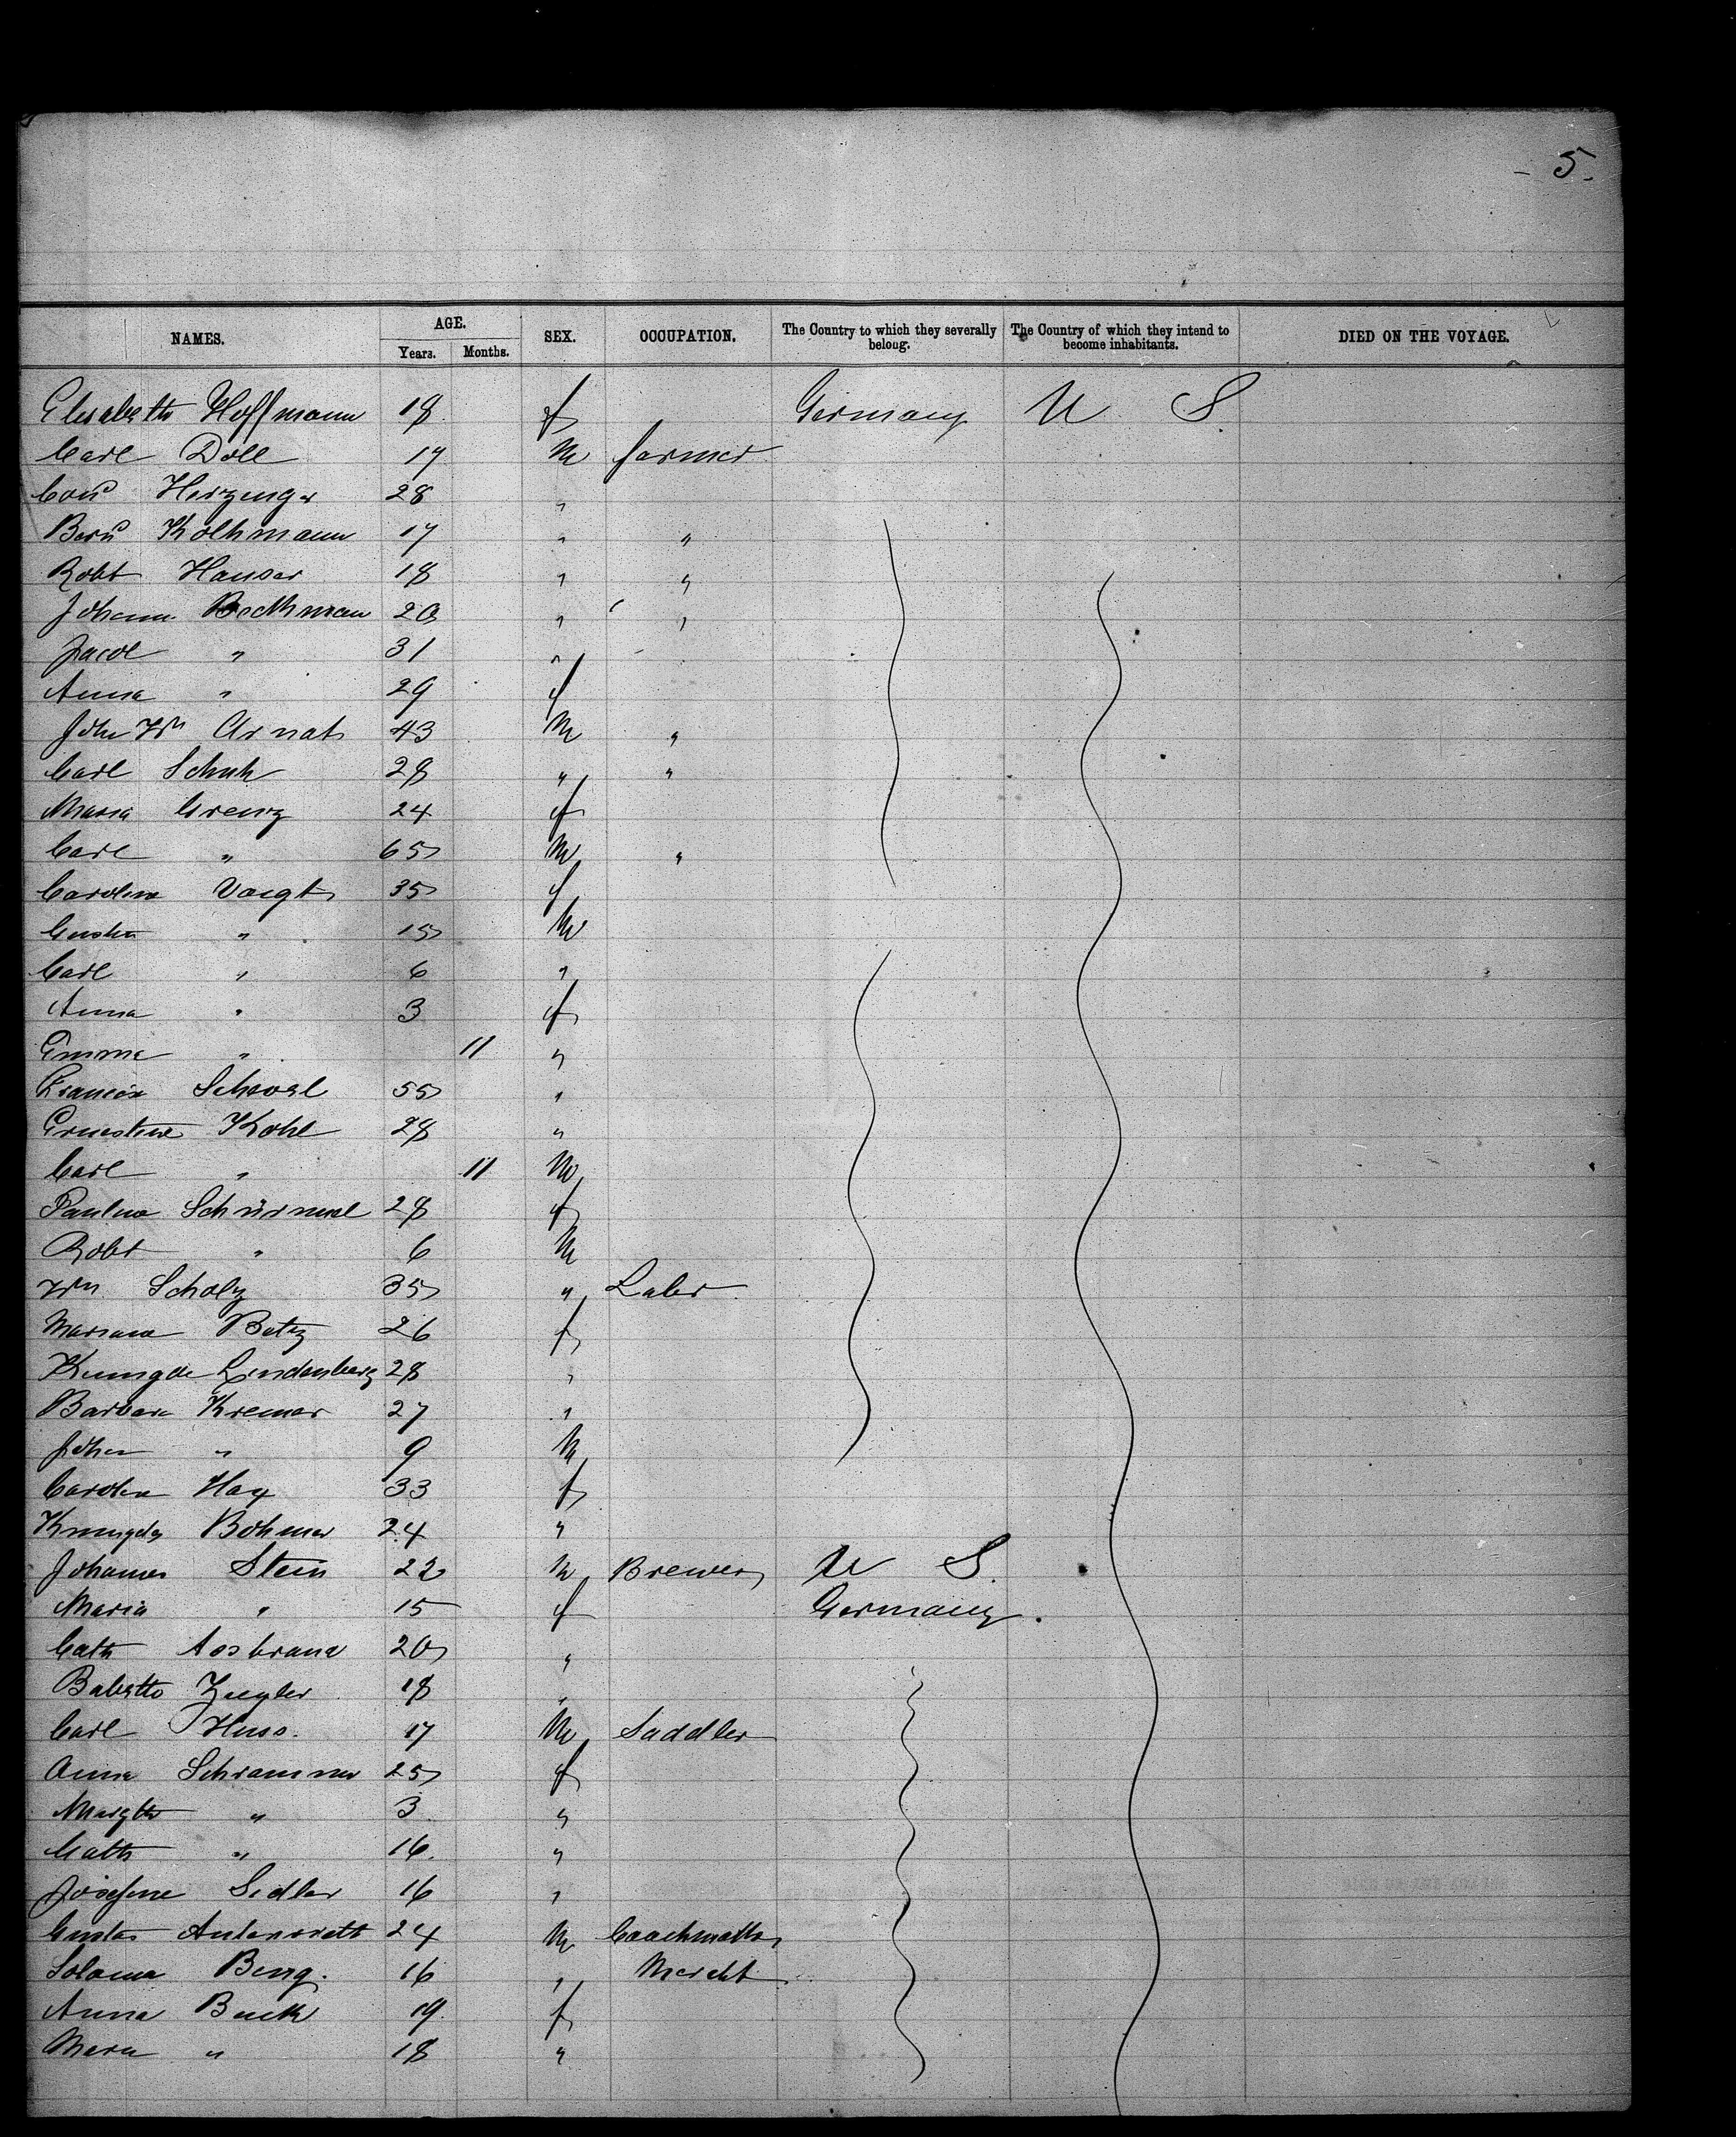 - 5.
NAMES. AGE. SEX. OCCUPATION. The Country to which they severally belong. The Country of which they intend to become inhabitants. DIED ON THE VOYAGE.
Years. Months.
Elisabeth Hoffmann 18 f Germany U S
Carl Doll 17 M farmer
Herzenger 28 "
Bernd Kolkmann 17 " "
Robt Hauser 18 " "
Johann 20 " "
Jacob " 31 "
Anna " 29 f
John Wm Arnat 43 M "
Carl Schuh 28 " "
Maria Grenz 24 f
Carl " 65 M "
Carolina Voigt 35 f
Gustav " 15 M
Carl " 6 "
Anna " 3 f
Emma " 11 "
55 "
Ernestine Kohl 28 "
Carl " 11 M
Paulina 28 f
Robt " 6 M
Wm Scholz 35 " Labr
Mariana Betz 26 f
Lindenberg 28 "
Barbara Kremer 27 "
Johan " 9 M
Carolin Hax 33 f
Böhmer 24 "
Johannes Stein 22 M Brewer U S.
Maria " 15 f Germany.
Cath 20 "
Babette Ziegler 18 "
Carl Huss. 17 M Saddler
Anna Schrammer 25 f
Margth " 3 "
Cath " 16. "
Josefine Sidler 16 "
Gustav 24 M
Berg. 16 " Mercht
Anna 19. f
Maria " 18 "